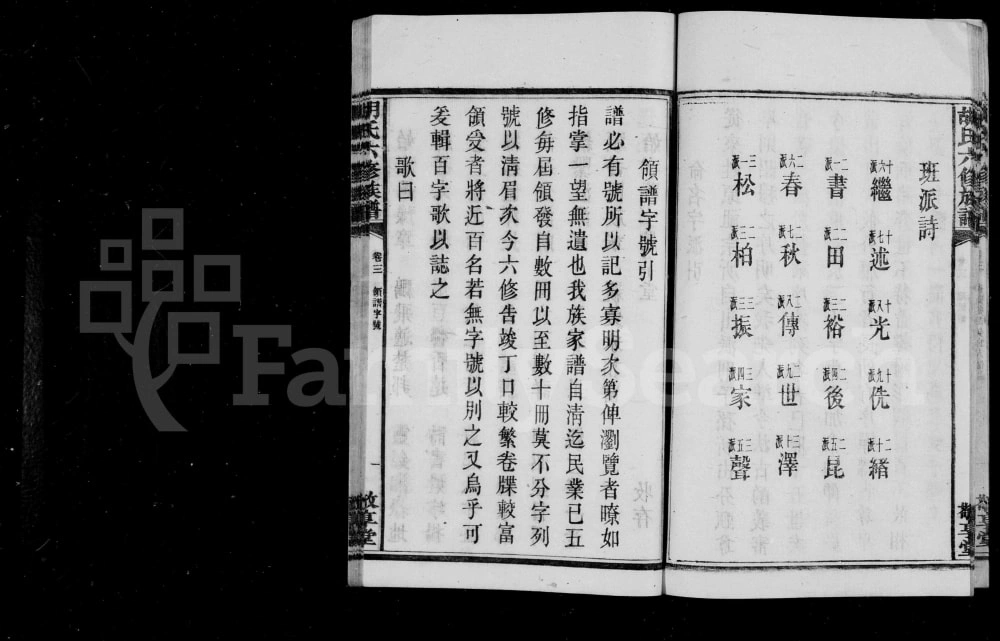 胡氏六修族譜
敬享堂
班派詩
十六派繼 十七派述 十八派光 十九派侁 二十派緒
二一派書 二二派田 二三派裕 二四派後 二五派昆
二六派春 二七派秋 二八派傳 二九派世 三十派澤
三一派松 三二派柏 三三派振 三四派家 三五派聲
領譜字號引
譜必有號所以記多寡明次第俾瀏覽者暸如
指掌一望無遺也我族家譜自清迄民業已五
修每屆領發自數冊以至數十冊莫不分字列
號以清眉次今六修告竣丁口較繁卷牒較富
領受者將近百名若無字號以別之又烏乎可
爰輯百字歌以誌之
歌曰
胡氏六修族譜
卷三 領譜字號
一
敬享堂
FamilySearch